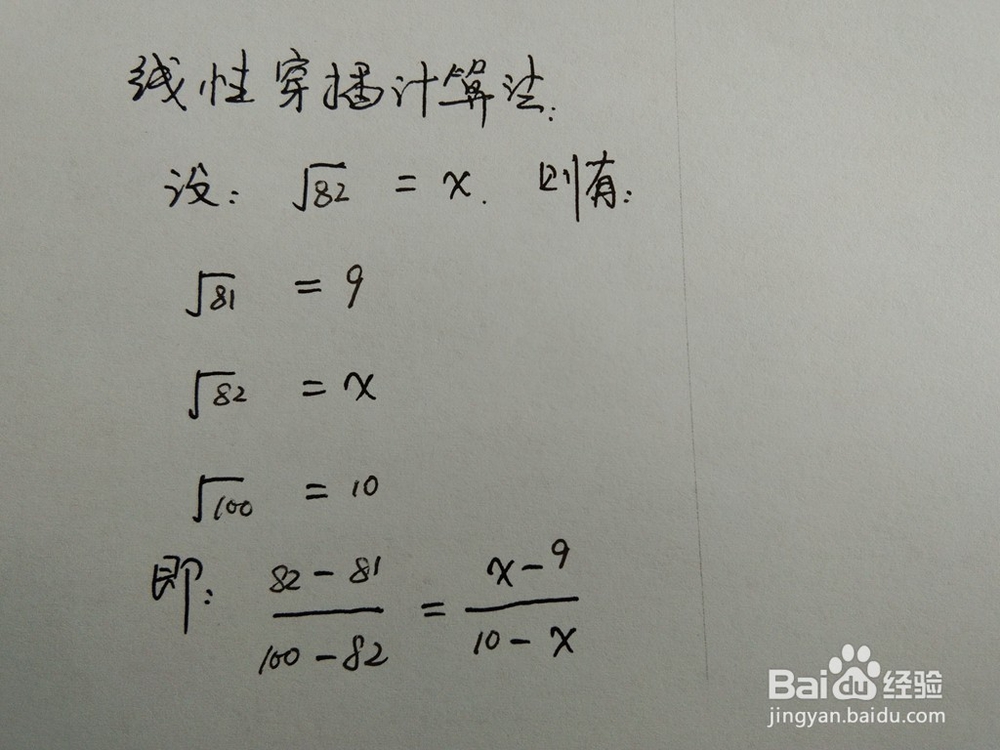 线性穿插计算法:
设: √82 = x. 则有:
√81 = 9
√82 = x
√100 = 10
即: (82-81)/(100-82) = (x-9)/(10-x)
Baidu经验
jingyan.baidu.com